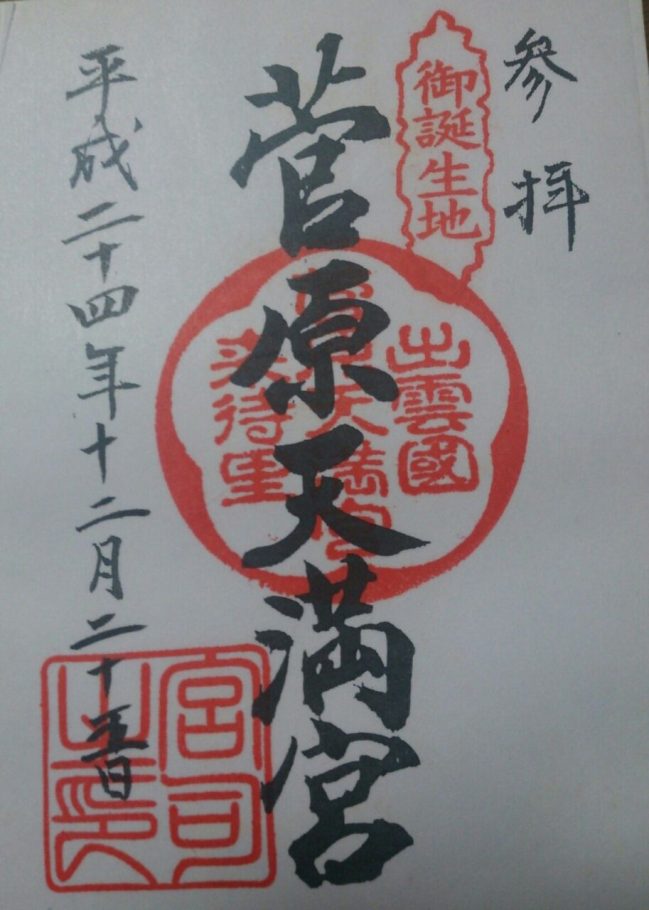 参拝
御誕生地
出雲國
来待里
菅原天満宮
平成二十四年十二月二十五日
宮司
之印